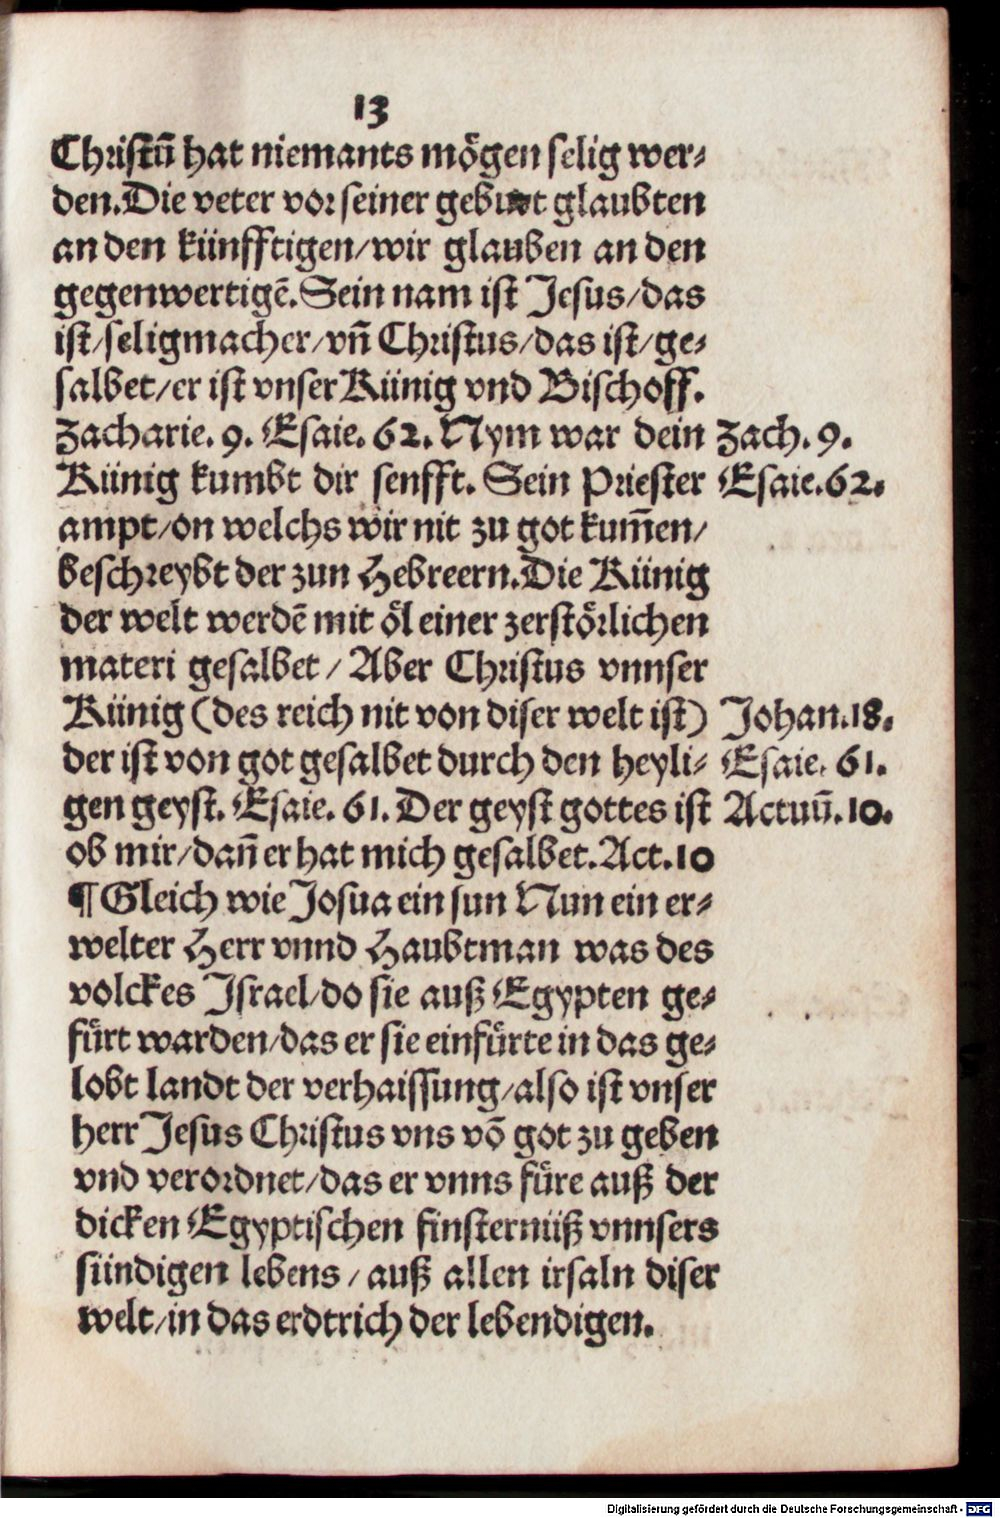 13
Christū hat niemants mögen selig wer⸗
den. Die veter vor seiner geburt glaubten
an den künfftigen/ wir glauben an den
gegenwertigē. Sein nam ist Jesus/ das
ist/ seligmacher/ vn̄ Christus/ das ist/ ge⸗
salbet/ er ist vnser Künig vnd Bischoff.
Zacharie. 9. Esaie. 62. Nym war dein Zach. 9.
Künig kumbt dir senfft. Sein Priester Esaie. 62.
ampt/ on welchs wir nit zu got kum̄en/
beschreybt der zun Hebreern. Die Künig
der welt werdē mit öl einer zerstörlichen
materi gesalbet/ Aber Christus vnnser
Künig (des reich nit von diser welt ist) Johan. 18.
der ist von got gesalbet durch den heyli⸗ Esaie. 61.
gen geyst. Esaie. 61. Der geyst gottes ist Actuū. 10.
ob mir/ dan̄ er hat mich gesalbet. Act. 10
¶ Gleich wie Josua ein sun Nun ein er⸗
welter Herr vnnd Haubtman was des
volckes Israel/ do sie auß Egypten ge⸗
fürt warden/ das er sie einfürte in das ge⸗
lobt landt der verhaissung/ also ist vnser
herr Jesus Christus vns vō got zu geben
vnd verordnet/ das er vnns füre auß der
dicken Egyptischen finsternüß vnnsers
sündigen lebens/ auß allen irsaln diser
welt/ in das erdtrich der lebendigen.
Digitalisierung gefördert durch die Deutsche Forschungsgemeinschaft - DFG